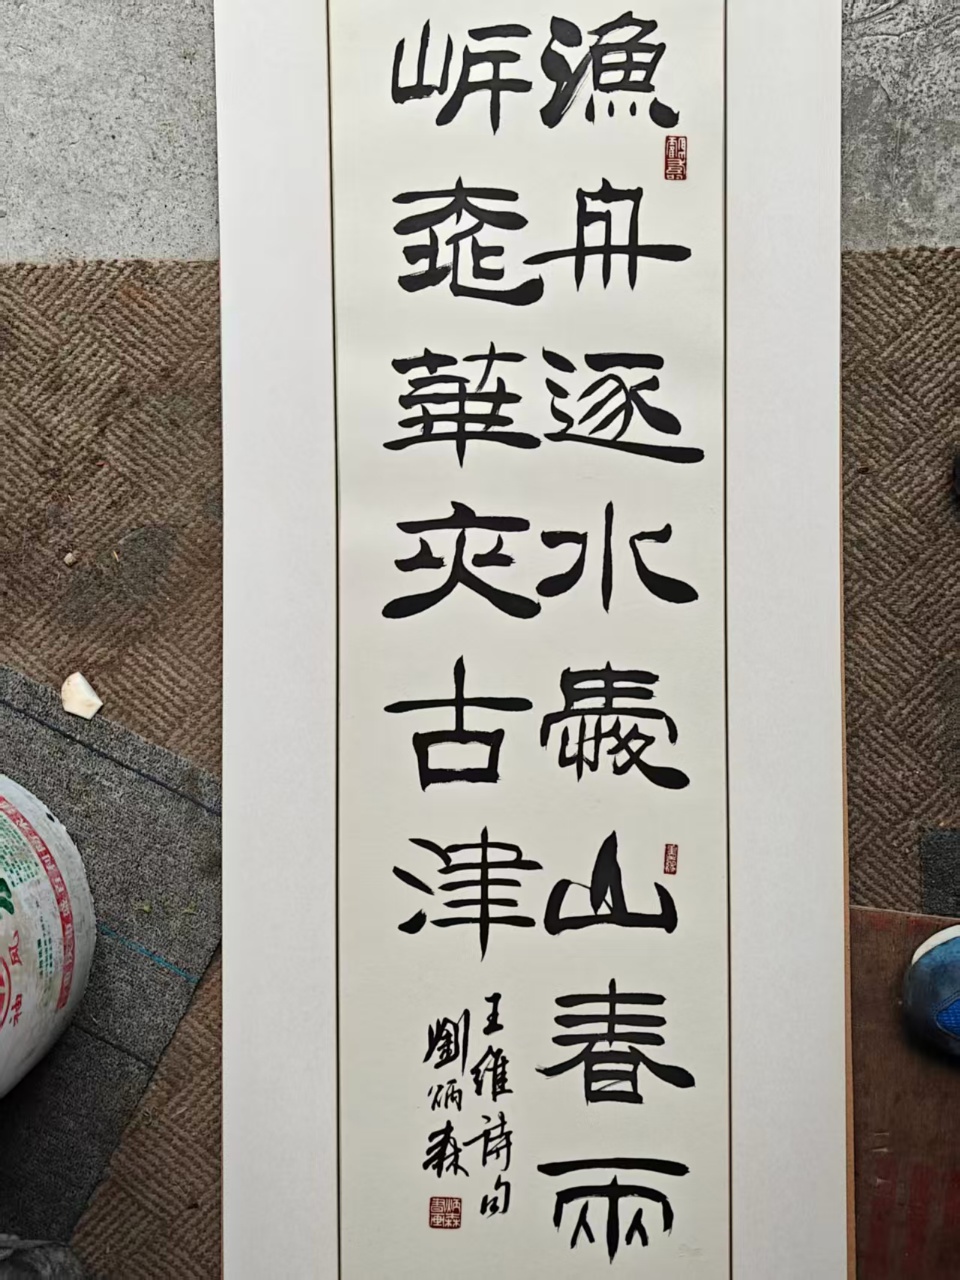 漁舟逐水愛山春兩
岸桃華夾古津
王維詩句
劉炳森